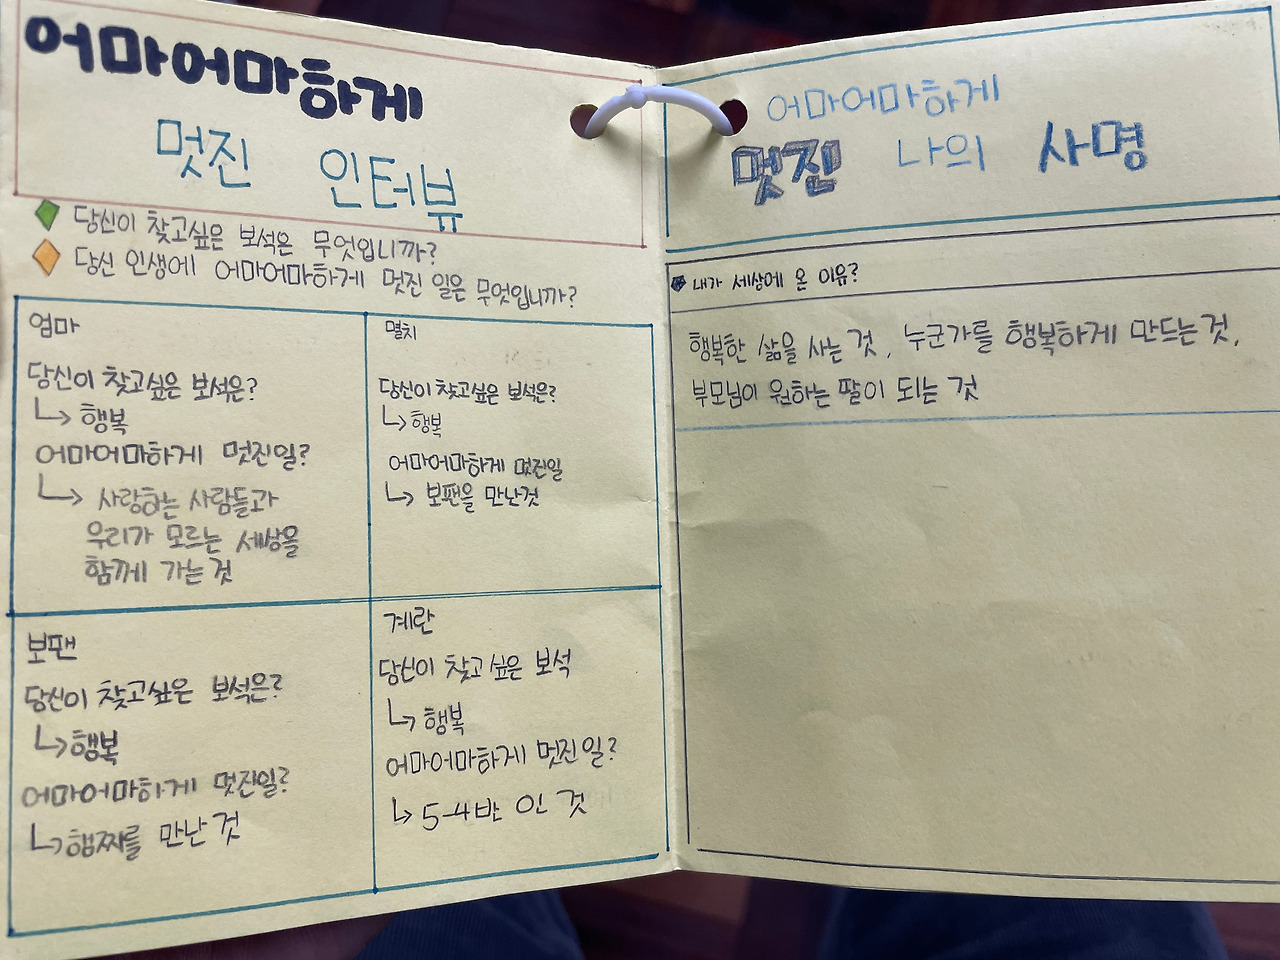 어마어마하게
멋진 인터뷰
당신이 찾고싶은 보석은 무엇입니까?
당신 인생에 어마어마하게 멋진 일은 무엇입니까?
엄마
당신이 찾고싶은 보석은?
↳ 행복
어마어마하게 멋진일?
↳ 사랑하는 사람들과
우리가 모르는 세상을
함께 가는 것
멸치
당신이 찾고싶은 보석은?
↳ 행복
어마어마하게 멋진일
↳ 보팬을 만난것
보팬
당신이 찾고싶은 보석은?
↳ 행복
어마어마하게 멋진일?
↳ 햄찌를 만난 것
계란
당신이 찾고싶은 보석
↳ 행복
어마어마하게 멋진일?
↳ 5-4반 인 것
어마어마하게
멋진 나의 사명
내가 세상에 온 이유?
행복한 삶을 사는 것, 누군가를 행복하게 만드는 것,
부모님이 원하는 딸이 되는 것